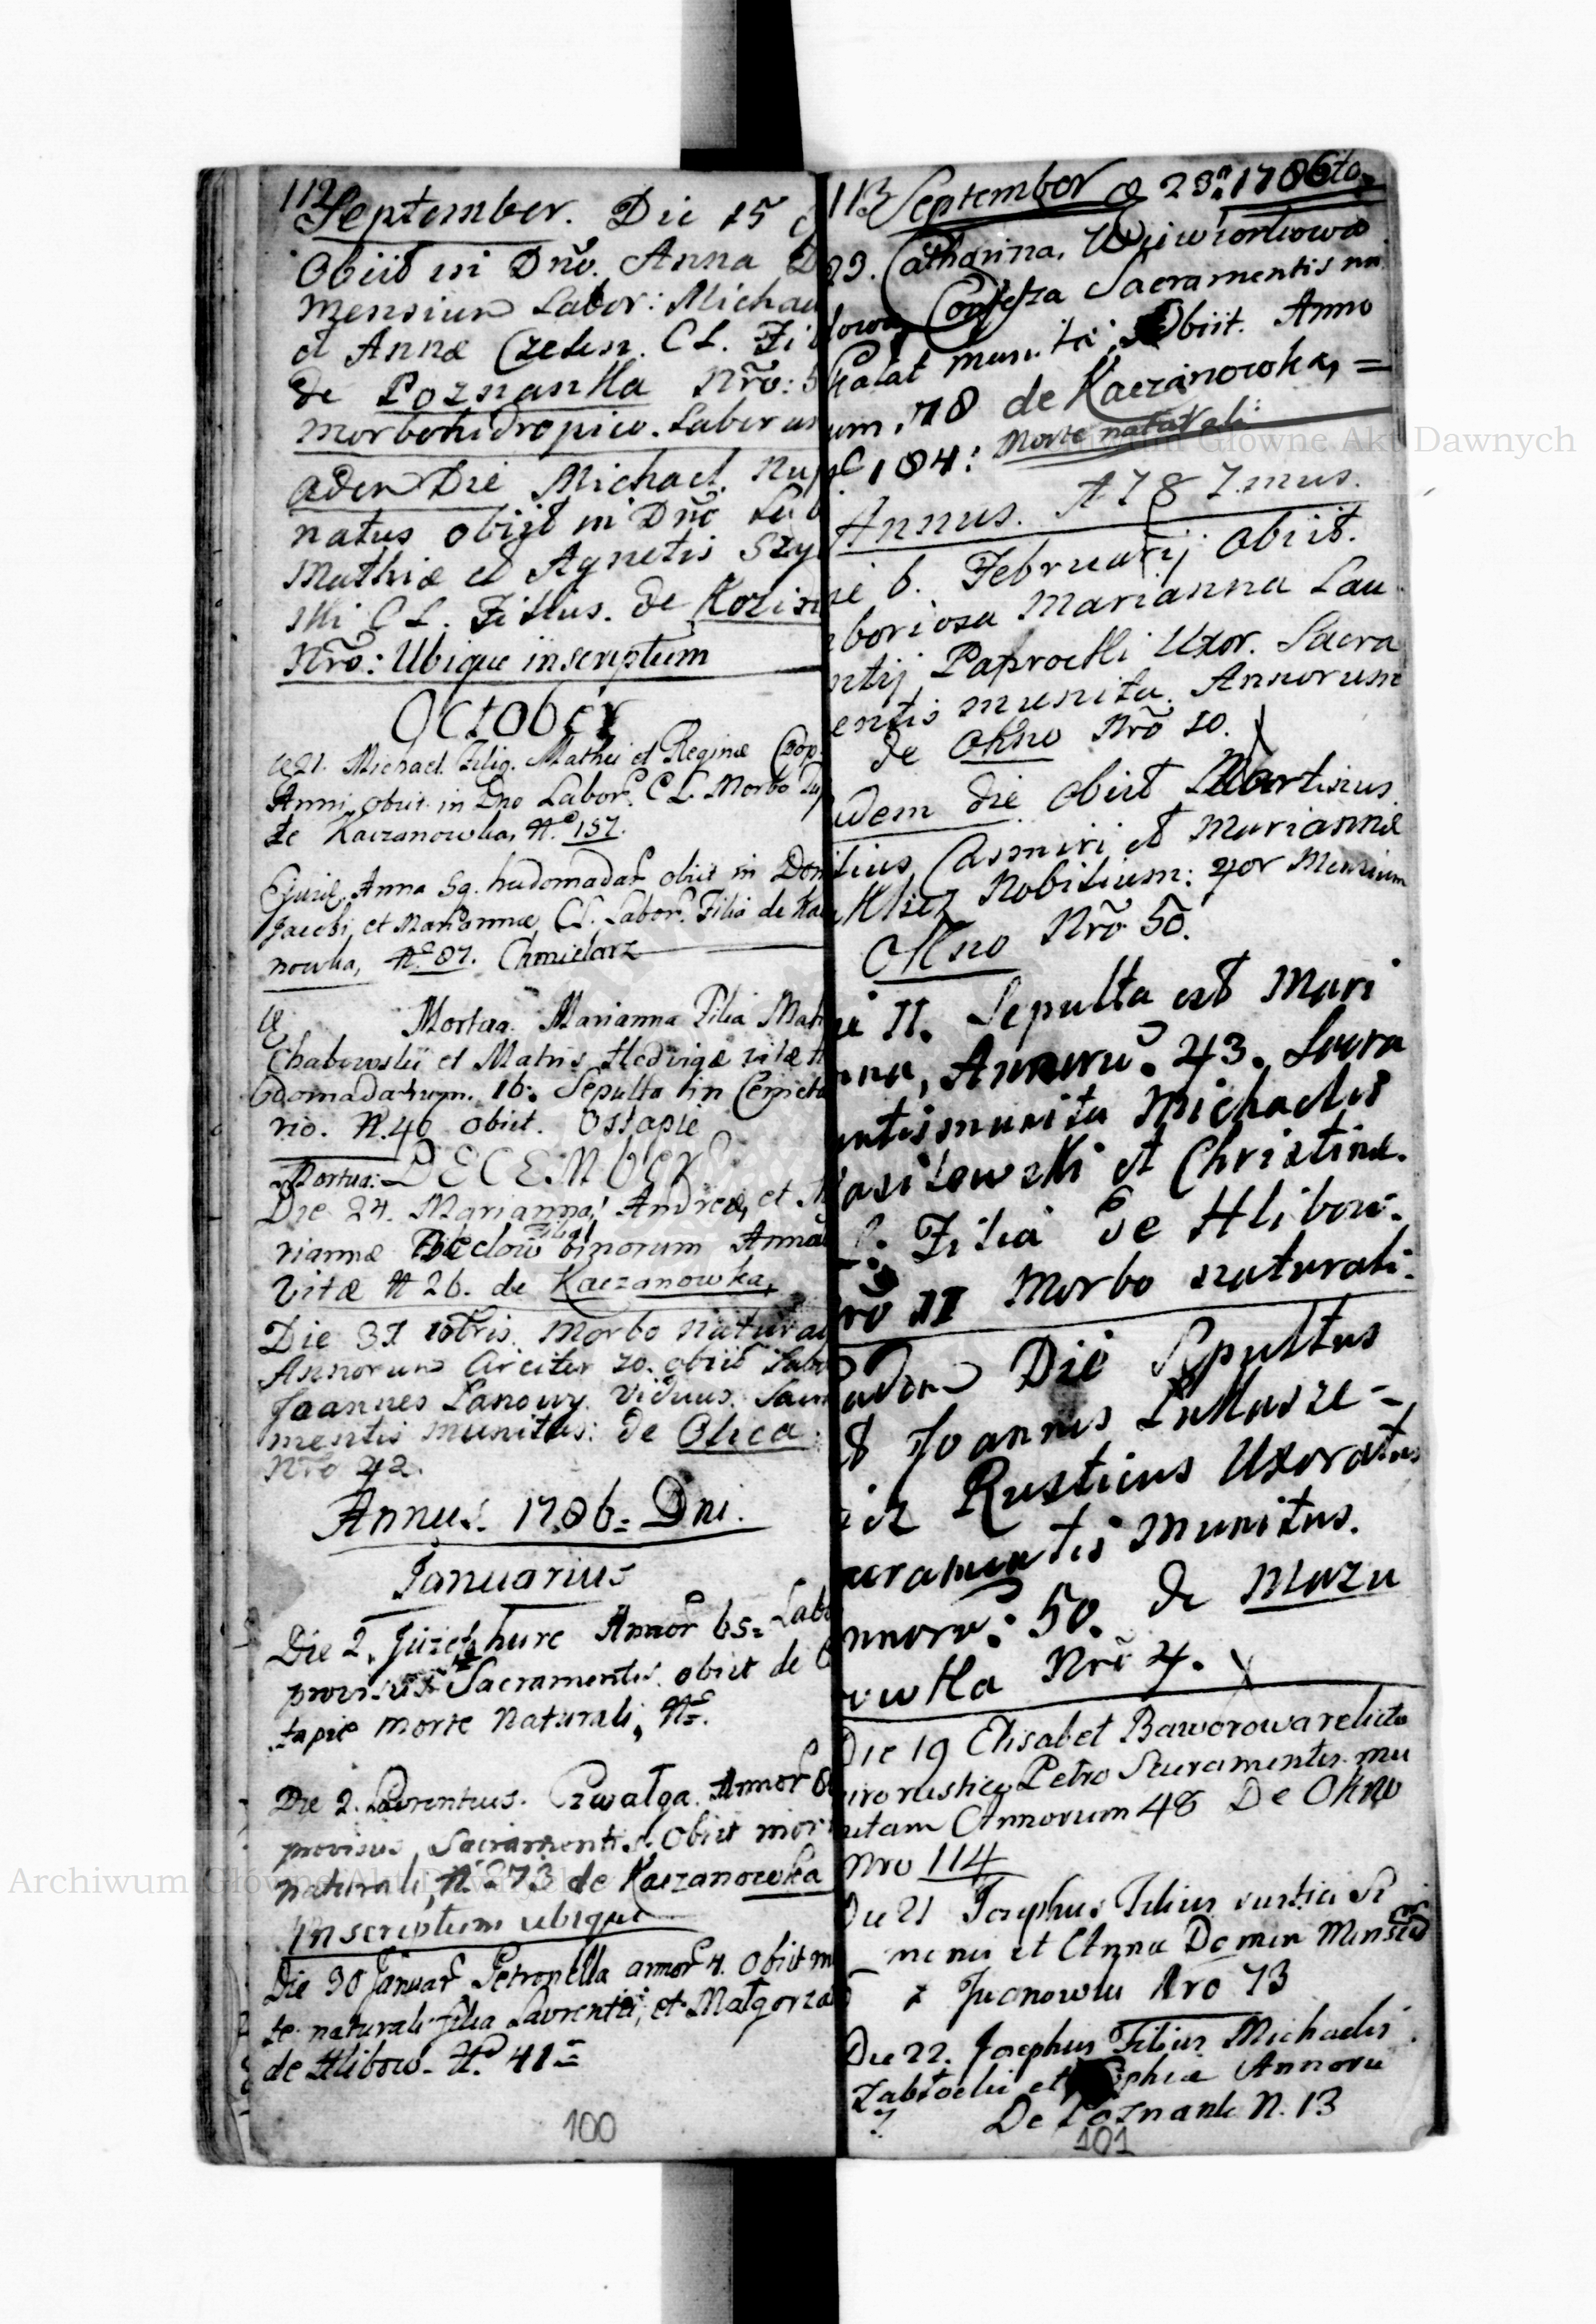 112
September. Die 15
Obiit in Dño. Anna
mensium Labor: Michae
et Annæ Czelen. CL. Fi
de Poznanka Nro: 5
morbo hidropico. Laboran
Eadem Die Michael Nup
natus obiit in Dño Lab
Mathiæ et Agnetis Szy
ski CL. Filius. de Kozin
Nro: Ubique inscriptum
October
21. Michael. Filig. Mathei et Reginæ Czop
Anni, obiit in Dno Labor. CL. Morbo
de Kaczanowka, N.° 157.
Ejusd. Anna 5q. hedomadar obiit in Dom
Jacobi, et Mariannæ, CL. Labor. Filia de Kac
nowka, N° 87. Chmielarz
Mortua Marianna Filia Mat
Chabowskii et Matris Hedvigæ vitæ
bdomadarum. 16. Sepulta in Cemete
rio. N. 46 obiit. Ostapie
Mortua: DECEMBER
Die 24. Marianna, Andreæ, et M
riannæ filia binorum Anno
Vitæ N 26. de Kaczanowka,
Die 31 10bris. Morbo Natural
Annorum Circiter 70. obiit Labo
Joannes Lanowy. Viduus. Sacra
mentis munitus: de Olica.
Nro 42.
Annus. 1786 = Dni.
Januarius
Die 2. hurc Annor 65= Labo
provisus Sacramentis. obiit de
tapie morte Naturali, N°.
Die 2. Lavrentius. Czwałga. Annor 8
provisus, Sacramentis. Obiit mor
naturali, N. 273 de Kaczanowka
Inscriptum ubique
Die 30 Januar Petronella annor 4. obiit m
te naturali filia Lavrentii, et Małgorza
de Hlibow. N° 41=
100
113 September 23. 1786to
23. Catharina, Wiwiorkowa
lowa, Confessa Sacramentis
munita; Obiit. Anno
um. 78 de Kaczanowka, =
184: Morte naturali:
Annus. 1787.mus.
ie 6. Februarij obiit.
boriosa Marianna Lau
ntij Paprocki Uxor. Sacra
entis munita. Annorum
de Okno Nro 10.
adem die obiit Martinus
ilius Casmiri et Mariannæ
Nobilium: 4or Mensium
Okno Nro 50.
ie 11. Sepulta est Mari
nna, Annoru. 43. Sacra
entis munita Michaelis
asilewski et Christinæ.
Filia de Hlibow.
ro 11 Morbo naturali.
adem Die Sepultus
t Joannes Łukasze=
icz Rusticus Uxoratus
acramentis munitus.
nnoru: 50. de Mazu
rowka Nro 4.
Die 19 Elisabet Baworowa relicta
viro rustico Petro Sacramentis mu
nitam Annorum 48 De Okno
Nro 114
Die 21 Josephus Filius rustici Si
meonis et Anna Domin Mensium
z Iwanowki Nro 73
Die 22. Josephus Filius Michaelis
Zabłocki et Sophiæ Annoru
7 De Poznank N. 13
101
Archiwum Główne Akt Dawnych
Archiwum Główne Akt Dawnych